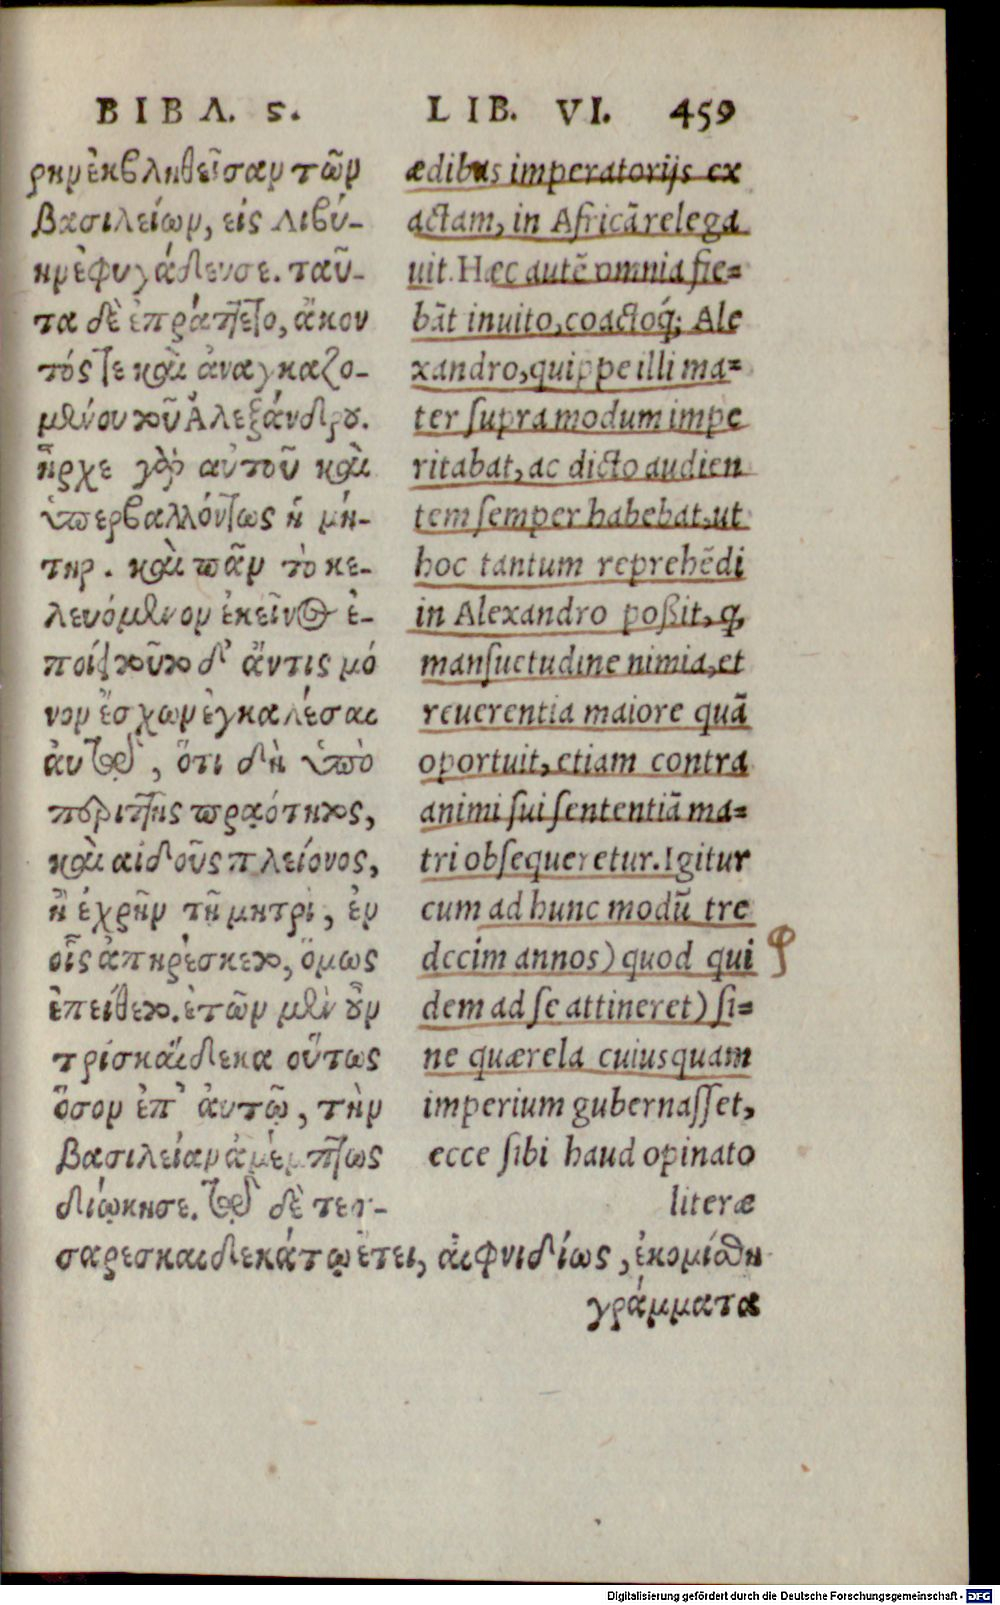 ΒΙΒΛ. ϛ.
ρην ἐκβληθεῖσαν τῶν
βασιλείων, εἰς Λιβύ-
ην ἐφυγάδευσε. ταῦ-
τα δὲ ἐπράττετο, ἄκον
τός τε καὶ ἀναγκαζο-
μένου τοῦ Ἀλεξάνδρου.
ἦρχε γὰρ αὐτοῦ καὶ
ὑπερβαλλόντως ἡ μή-
τηρ. καὶ πᾶν τὸ κε-
λευόμενον ἐκεῖνος ἐ-
ποίει τοῦτο δ' ἄν τις μό
νον ἔσχων ἐγκαλέσαι
ἀυτῷ, ὅτι δὴ ὑπὸ
περιττῆς πραότητος,
καὶ αἰδοῦς πλείονος,
ἢ ἐχρῆν τῇ μητρὶ, ἐν
οἷς ἀπηρέσκετο, ὅμως
ἐπείθετο. ἐτῶν μὲν οὖν
τρίσκαίδεκα οὕτως
ὅσον ἐπ' ἀυτῷ, τὴν
βασιλείαν ἀμέμπτως
διῴκησε. τῷ δὲ τεσ-
σαρεσκαιδεκάτῳ ἔτει, αἰφνιδίως, ἐκομίσθη
γράμματα
LIB. VI. 459
ædibus imperatorijs ex
actam, in Africā relega
uit. Hæc autē omnia fie=
bāt inuito, coactoq́; Ale
xandro, quippe illi ma=
ter supra modum impe
ritabat, ac dicto audien
tem semper habebat, ut
hoc tantum reprehēdi
in Alexandro poßit, ꝙ
mansuetudine nimia, et
reuerentia maiore quā
oportuit, etiam contra
animi sui sententiā ma=
tri obsequeretur. Igitur
cum ad hunc modū tre
decim annos) quod qui
dem ad se attineret) si=
ne quærela cuiusquam
imperium gubernasset,
ecce sibi haud opinato
literæ
Digitalisierung gefördert durch die Deutsche Forschungsgemeinschaft - DFG